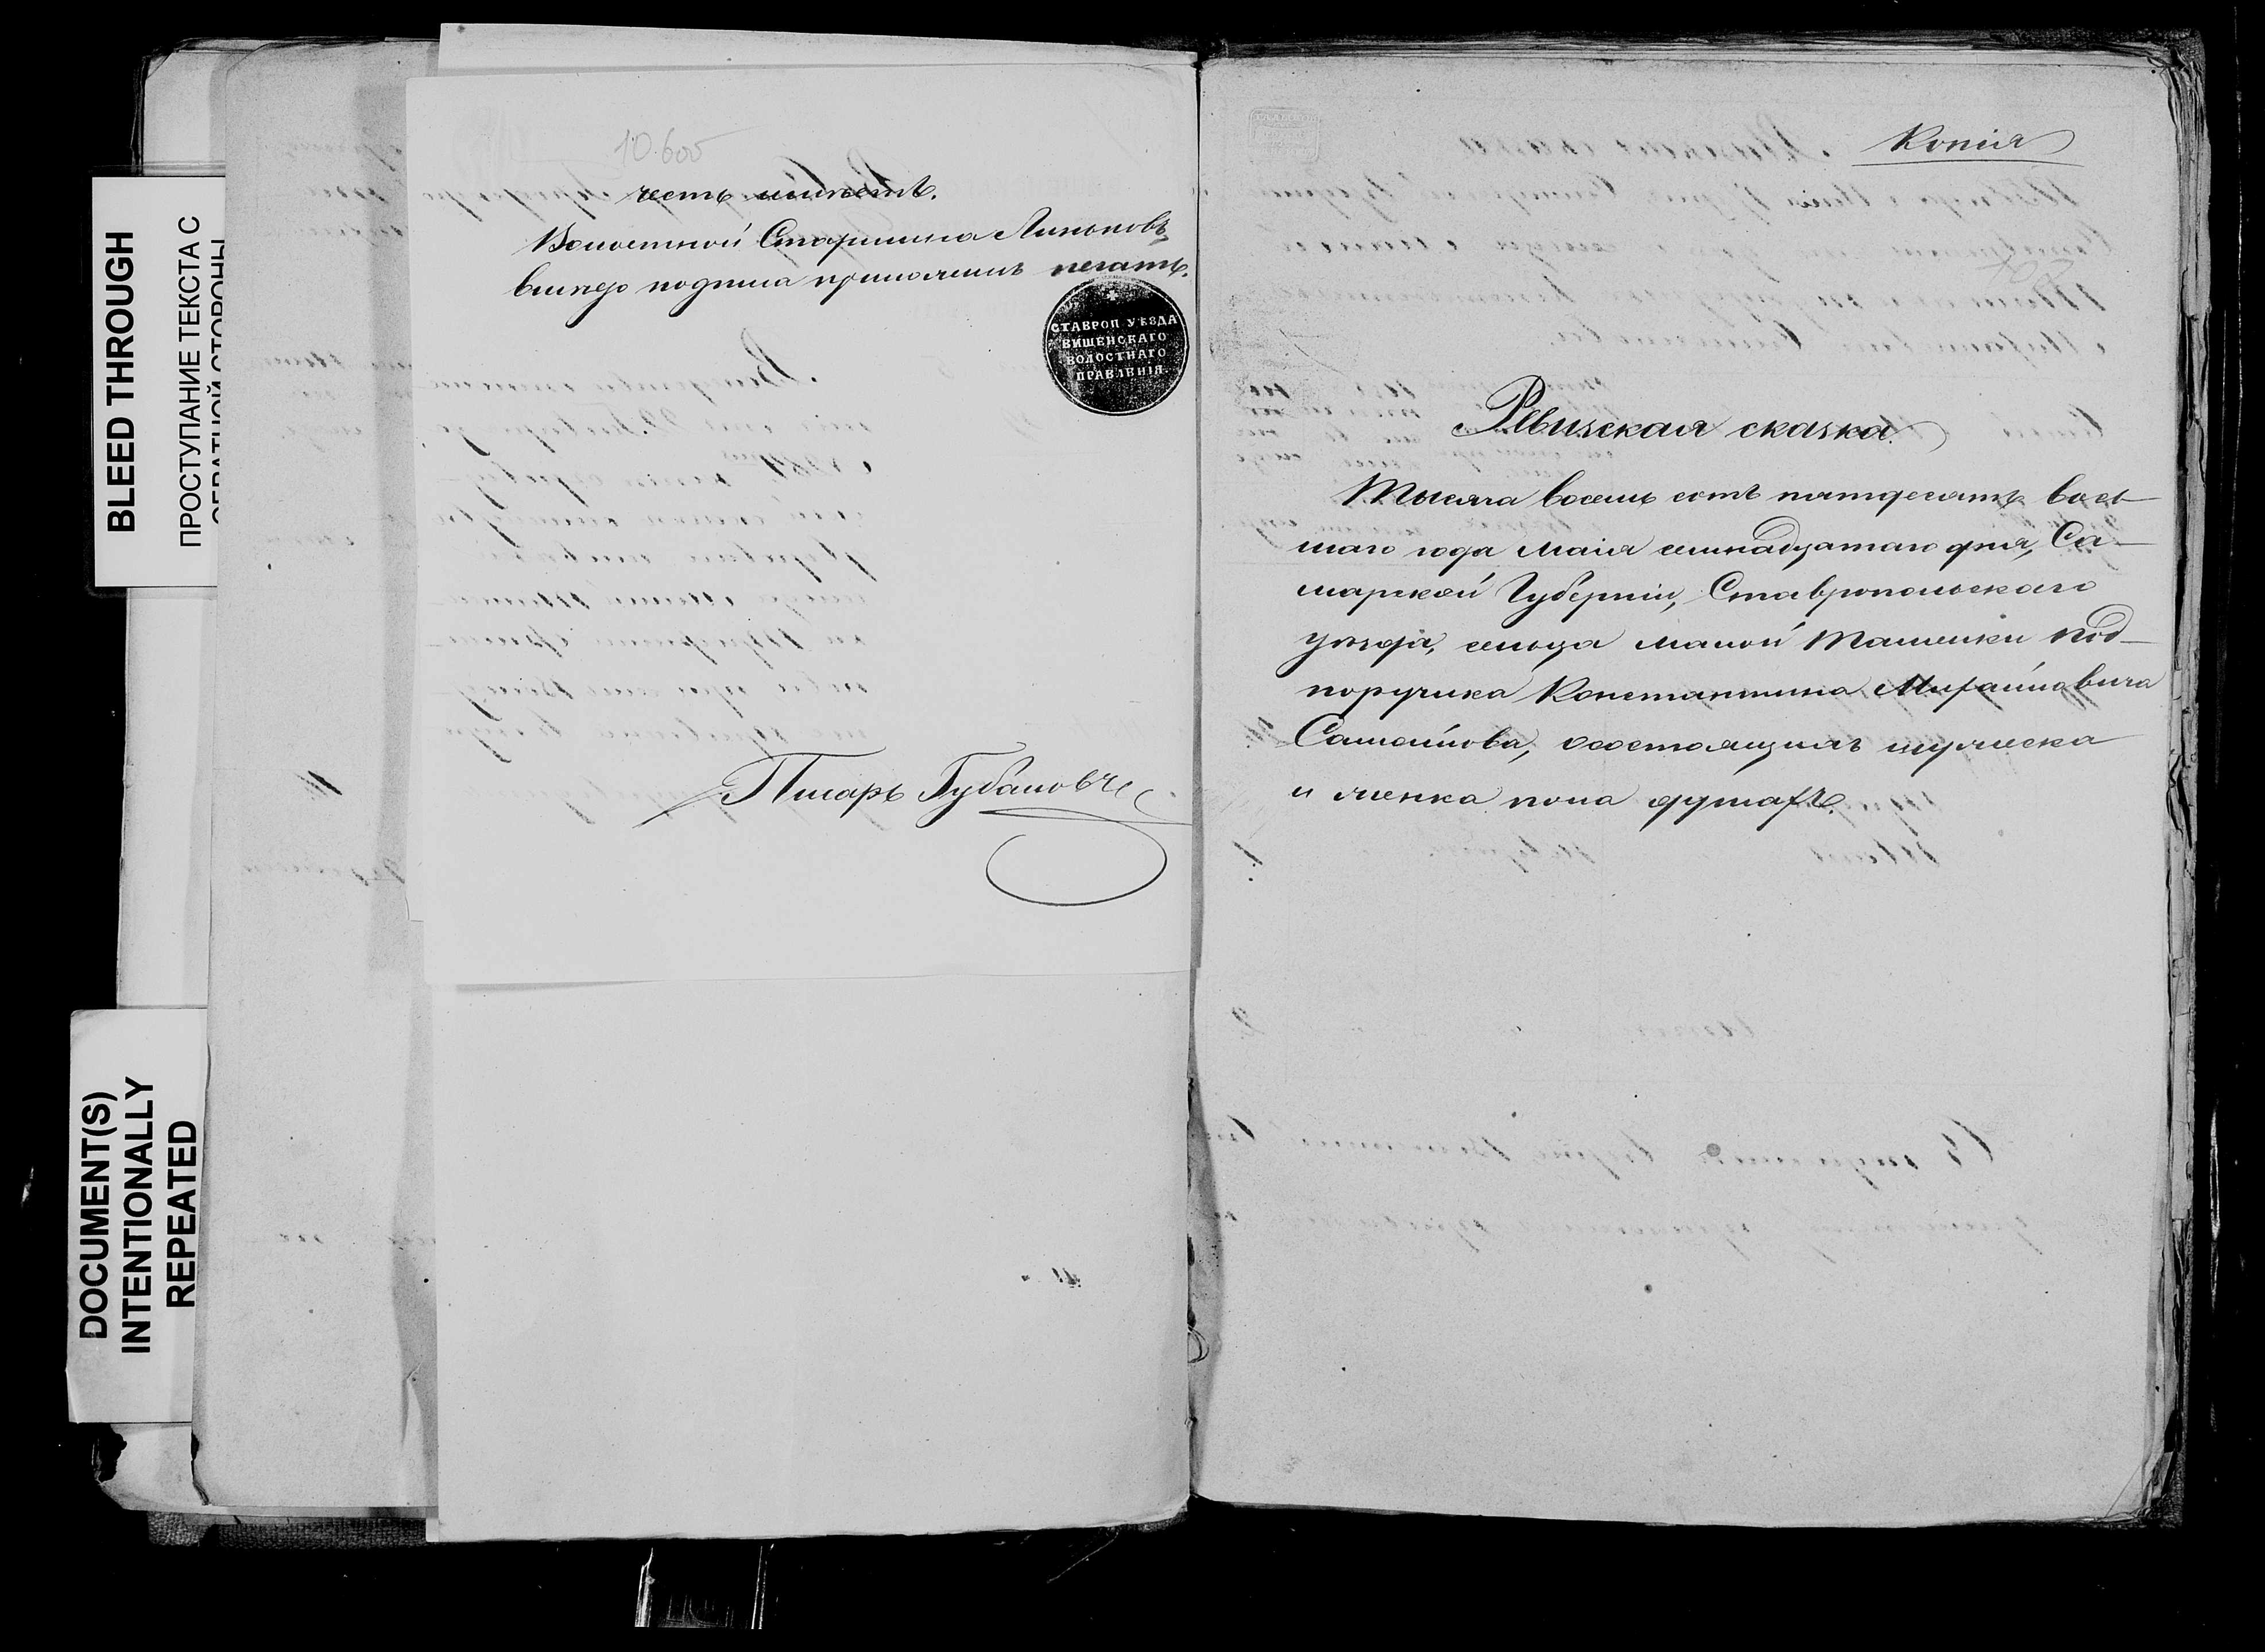 BLEED THROUGH
ПРОСТУПАНИЕ ТЕКСТА С
ОБРАТНОЙ СТОРОНЫ
DOCUMENT(S)
INTENTIONALLY
REPEATED
10.600
честь имѣетъ.
Волостной Старшина
вмѣсто подписа приложилъ печать.
СТАВРОП УѢЗДА
ВИШЕНСКАГО
ВОЛОСТНАГО
ПРАВЛЕНІЯ
Писарь Губановъ
Копія
Ревизская сказка
Тысяча восемь сотъ пятдесятъ вось-
маго года маія семнадцатаго дня, Са-
марской Губерніи, Ставропольскаго
уѣзда, сельца малой Ташелки под-
поручика Константина Михайловича
Самойлова, о состоящихъ мужеска
и женска пола душахъ.